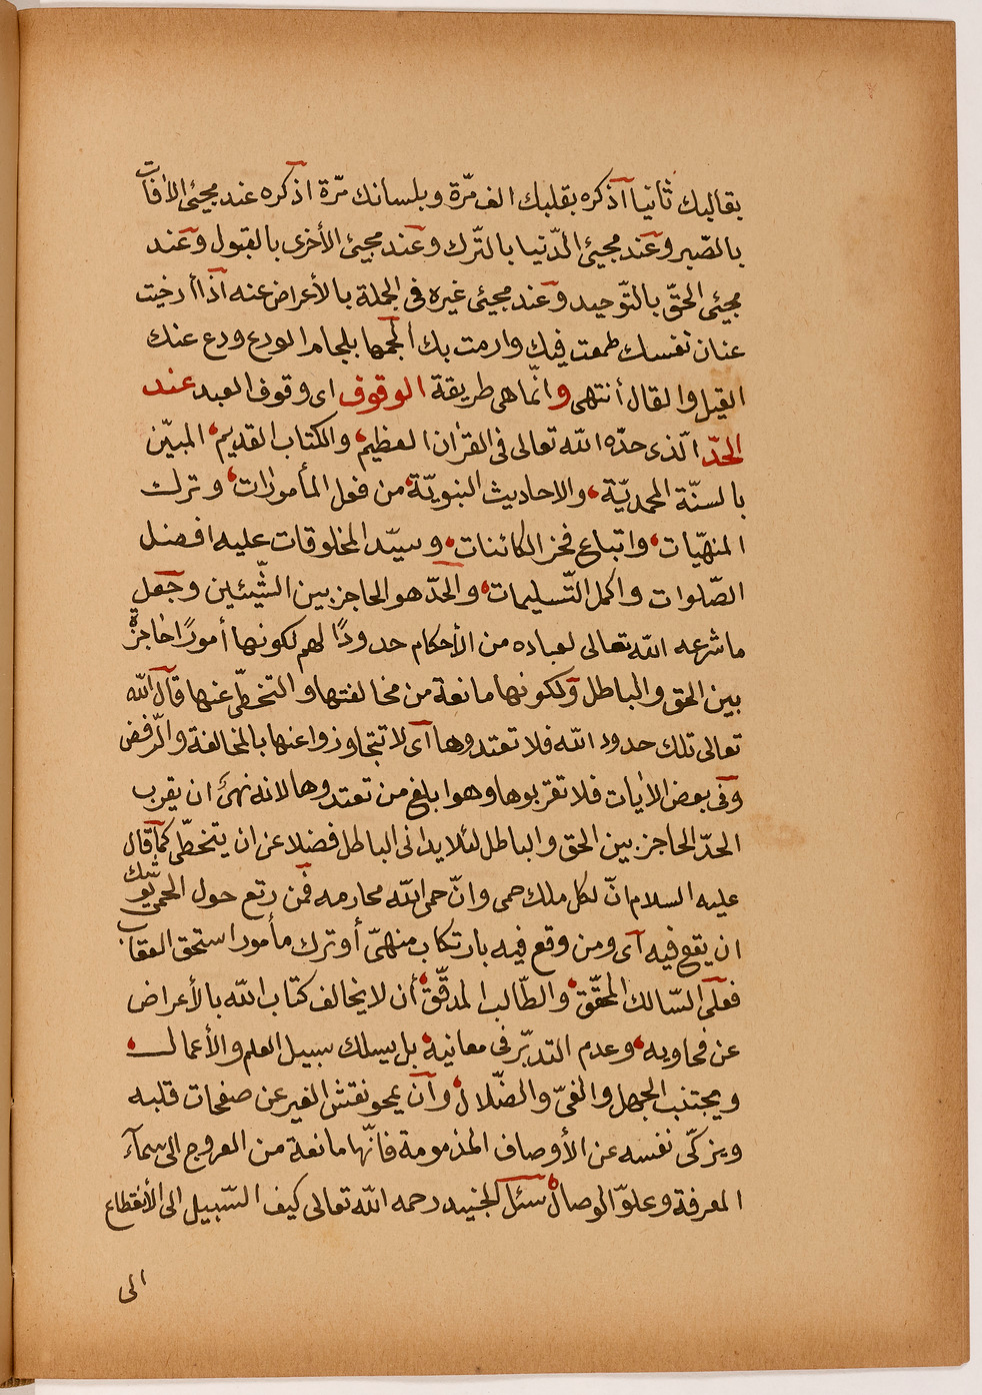 بقالبك ثانيا اذكره بقلبك الف مرّة وبلسانك مرّة اذكره عند مجيئ الاٰفات
بالصّبر وعند مجيئ الدّنيا بالتّرك وعند مجيئ الأخرى بالقبول وعند
مجيئ الحقّ بالتّوحيد وعند مجيئ غيره فى الجملة بالأعراض عنه اذا أرخيت
عنان نفسك طمعت فيك وارمت بك الجمها بلجام الورع ودع عنك
القيل والقال أنتهى وانّما هى طريقة الوقوف اى وقوف العبد عند
الحدّ الّذى حدّه الله تعالى فى القرٰان العظيم، والكتاب القديم، المبيّن
بالسنّة المحمديّة، والاحاديث النبويّة، من فعل المأمورٰات، وترك
المنهيّات، واتباع فخر الكائنات، وسيّد المخلوقات عليه افضل
الصّلوات واكمل التّسليمات، والحدّ هو الحاجز بين الشّيئين وجعل
ما شرعه الله تعالى لعباده من الأحكام حدودًا لهم لكونها أمورًا حاجزة
بين الحق والباطل ولكونها مانعة من مخالفتها والتخطّى عنها قال الله
تعالى تلك حدود الله فلا تعتدوها اى لا تتجاوزوا عنها بالمخالفة والرّفض
وفى بعض الاٰيات فلا تقربوها وهو ابلغ من تعتدوها لانه نهىَ ان يقرب
الحدّ الحاجز بين الحق والباطل لئلا يدانى الباطل فضلا عن ان يتخطّى كما قال
عليه السلام انّ لكل ملك حمى وانّ حمى الله محارمه فمن رتع حول الحمى يوشك
ان يقع فيه اى ومن وقع فيه بارتكاب منهىّ أو ترك مأمور استحق العقاب
فعلى السّالك المحقّق، والطّالب المدقّق، أن لا يخالف كتاب الله بالأعراض
عن فحاويه، وعدم التدبّر فى معانيه، بل يسلك سبيل العلم والأعمال،
ويجتنب الجهل والغىّ والضّلال، وان يمحو نقش الغير عن صفحات قلبه
ويزكّى نفسه عن الأوصاف المذمومة فانّها مانعة من العروج الى سمآء
المعرفة وعلوّ الوصال، سئل الجنيد رحمه الله تعالى كيف السّبيل الى الأنقطاع
الى